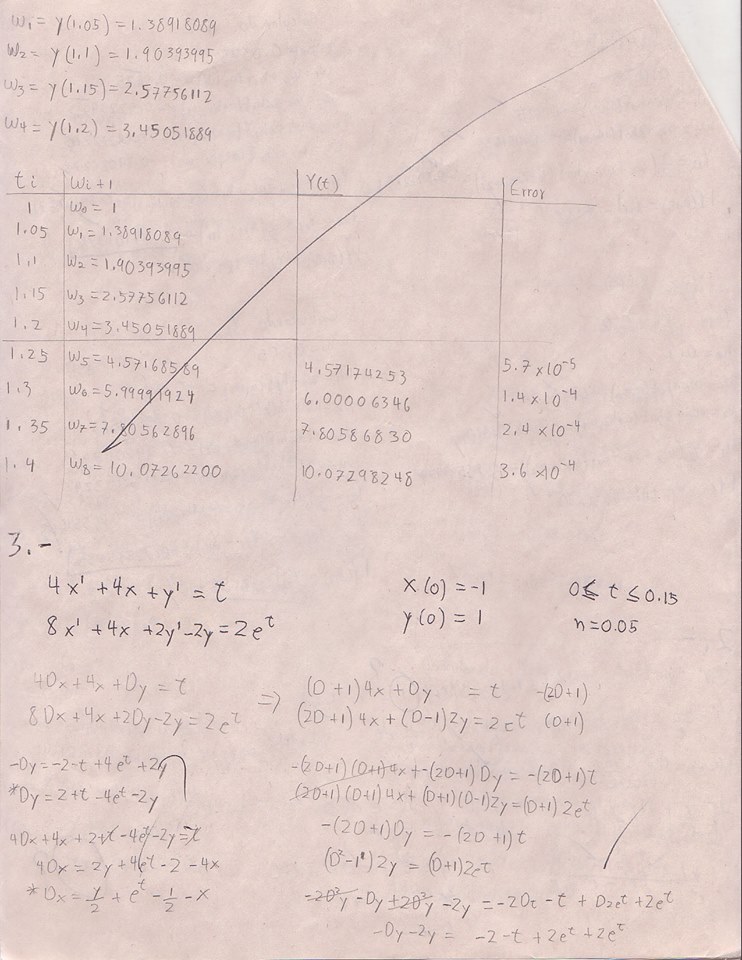 w₁ = y(1.05) = 1.38918089
w₂ = y(1.1) = 1.90393995
w₃ = y(1.15) = 2.57756112
w₄ = y(1.2) = 3.45051889
ti | wi+1 | Y(t) | Error
1 | w₀ = 1
1.05 | w₁ = 1.38918089
1.1 | w₂ = 1.90393995
1.15 | w₃ = 2.57756112
1.2 | w₄ = 3.45051889
1.25 | w₅ = 4.57168589 | 4.57174253 | 5.7 x10⁻⁵
1.3 | w₆ = 5.99991924 | 6.00006346 | 1.4 x10⁻⁴
1.35 | w₇ = 7.80562896 | 7.80586830 | 2.4 x10⁻⁴
1.4 | w₈ = 10.07262200 | 10.07298248 | 3.6 x10⁻⁴
3.-
4x' + 4x + y' = t    x(0) = -1    0 ≤ t ≤ 0.15
8x' + 4x + 2y' - 2y = 2e^t    y(0) = 1    n = 0.05
4Dx + 4x + Dy = t ⇒ (D+1)4x + Dy = t    -(2D+1)
8Dx + 4x + 2Dy - 2y = 2e^t    (2D+1)4x + (D-1)2y = 2e^t    (D+1)
-Dy = -2 - t + 4e^t + 2y
*Dy = 2 + t - 4e^t - 2y
4Dx + 4x + 2 + t - 4e^t - 2y = t
4Dx = 2y + 4e^t - 2 - 4x
*Dx = y/2 + e^t - 1/2 - x
-(2D+1)(D+1)4x + -(2D+1)Dy = -(2D+1)t
(2D+1)(D+1)4x + (D+1)(D-1)2y = (D+1)2e^t
-(2D+1)Dy = -(2D+1)t
(D²-1²)2y = (D+1)2e^t
-2D²y - Dy + 2D²y - 2y = -2Dt - t + D2e^t + 2e^t
-Dy - 2y = -2 - t + 2e^t + 2e^t